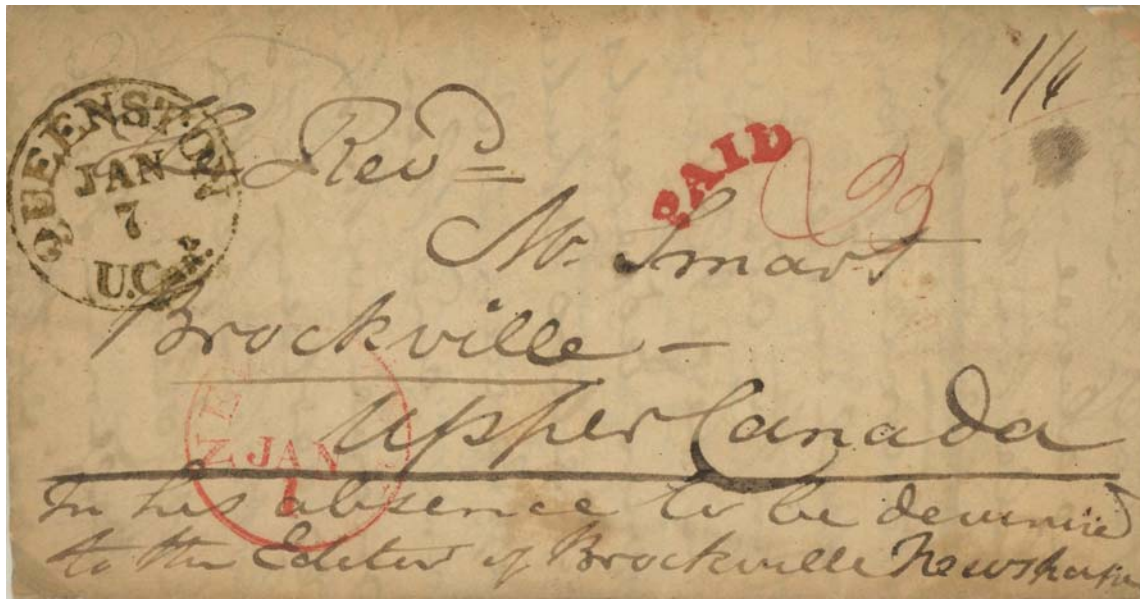 1/4
QUEENSTOWN
JAN
7
U.Can.
PAID
Revd.
Mr. Smart
Brockville -
Upper Canada
JAN
1
In his absence to be
to the Editor of Brockville Newspaper